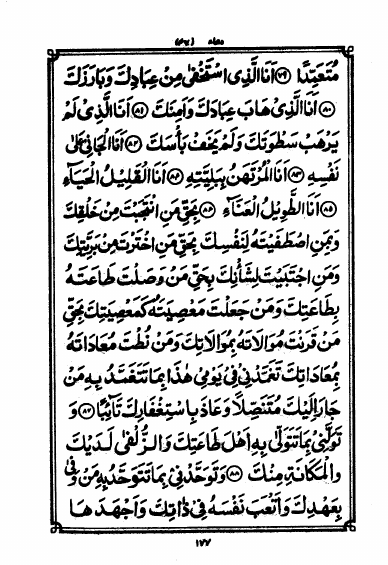 دعاء (٤٧)
مُتَعَمِّدًا ﴿٧٩﴾ اَنَا الَّذِى اسْتَخْفٰى مِنْ عِبَادِكَ وَبَارَزَكَ
﴿٨٠﴾ اَنَا الَّذِى هَابَ عِبَادَكَ وَاَمِنَكَ ﴿٨١﴾ اَنَا الَّذِى لَمْ
يَرْهَبْ سَطْوَتَكَ وَلَمْ يَخَفْ بَأْسَكَ ﴿٨٢﴾ اَنَا الْجَانِىْ عَلٰى
نَفْسِهٖ ﴿٨٣﴾ اَنَا الْمُرْتَهَنُ بِبَلِيَّتِهٖ ﴿٨٤﴾ اَنَا الْقَلِيْلُ الْحَيَآءِ
﴿٨٥﴾ اَنَا الطَّوِيْلُ الْعَنَآءِ ﴿٨٦﴾ بِحَقِّ مَنِ انْتَجَبْتَ مِنْ خَلْقِكَ
وَبِمَنِ اصْطَفَيْتَهُ لِنَفْسِكَ بِحَقِّ مَنِ اخْتَرْتَ مِنْ بَرِيَّتِكَ
وَمَنِ اجْتَبَيْتَ لِشَأْنِكَ بِحَقِّ مَنْ وَصَلْتَ طَاعَتَهُ
بِطَاعَتِكَ وَمَنْ جَعَلْتَ مَعْصِيَتَهُ كَمَعْصِيَتِكَ بِحَقِّ
مَنْ قَرَنْتَ مُوَالَاتَهُ بِمُوَالَاتِكَ وَمَنْ نُطْتَ مُعَادَاتَهُ
بِمُعَادَاتِكَ تَغَمَّدْنِىْ فِىْ يَوْمِىْ هٰذَا بِمَا تَتَغَمَّدُ بِهٖ مَنْ
جَارَ اِلَيْكَ مُتَنَصِّلًا وَعَاذَ بِاسْتِغْفَارِكَ تَآئِبًا ﴿٨٧﴾ وَ
تَوَلَّنِىْ بِمَا تَتَوَلّٰى بِهٖ اَهْلَ طَاعَتِكَ وَالزُّلْفٰى لَدَيْكَ
وَالْمَكَانَةِ مِنْكَ ﴿٨٨﴾ وَتَوَحَّدْنِىْ بِمَا تَتَوَحَّدُ بِهٖ مَنْ وَفٰى
بِعَهْدِكَ وَاَتْعَبَ نَفْسَهُ فِىْ ذَاتِكَ وَاَجْهَدَهَا
١٧٧